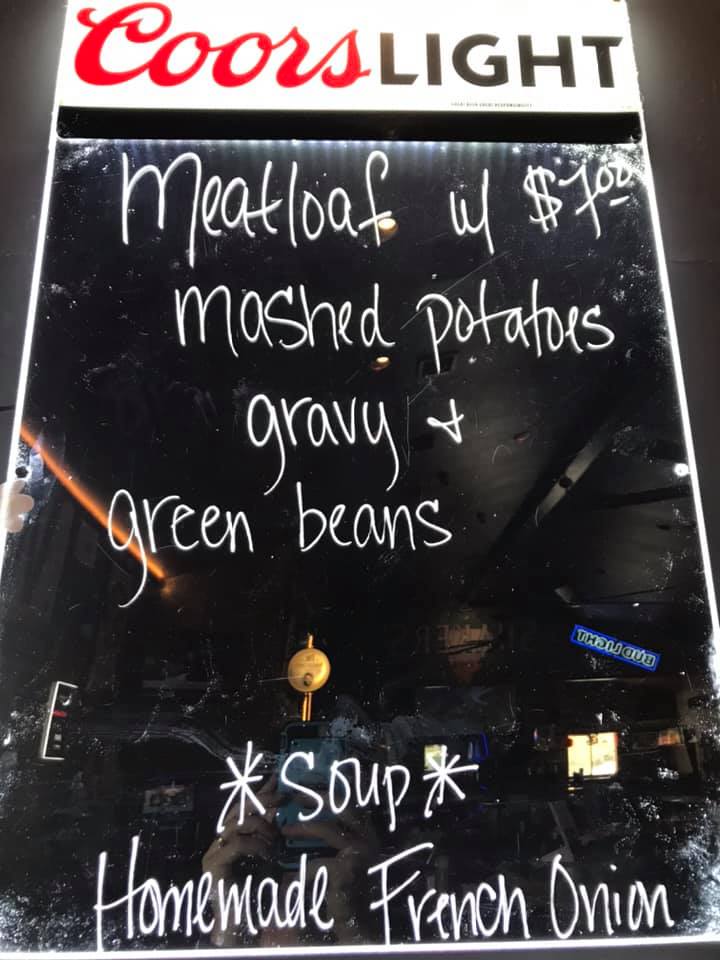 Coors LIGHT
Meatloaf w/ $7.00
mashed potatoes
gravy +
green beans
BUD LIGHT
*Soup*
Homemade French Onion